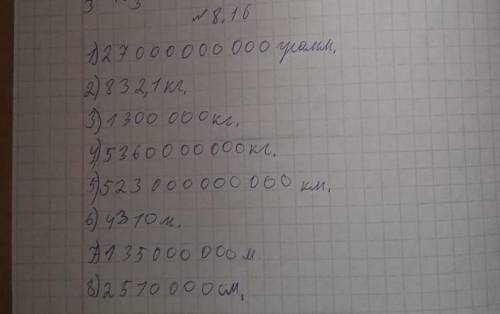 № 8.16
1) 27 000 000 000 грамм.
2) 832,1 кг.
3) 1300 000 кг.
4) 53600000000 кг.
5) 523 000 000 000 км.
6) 4310 м.
7) 135 000 000 м
8) 2510 000 см.